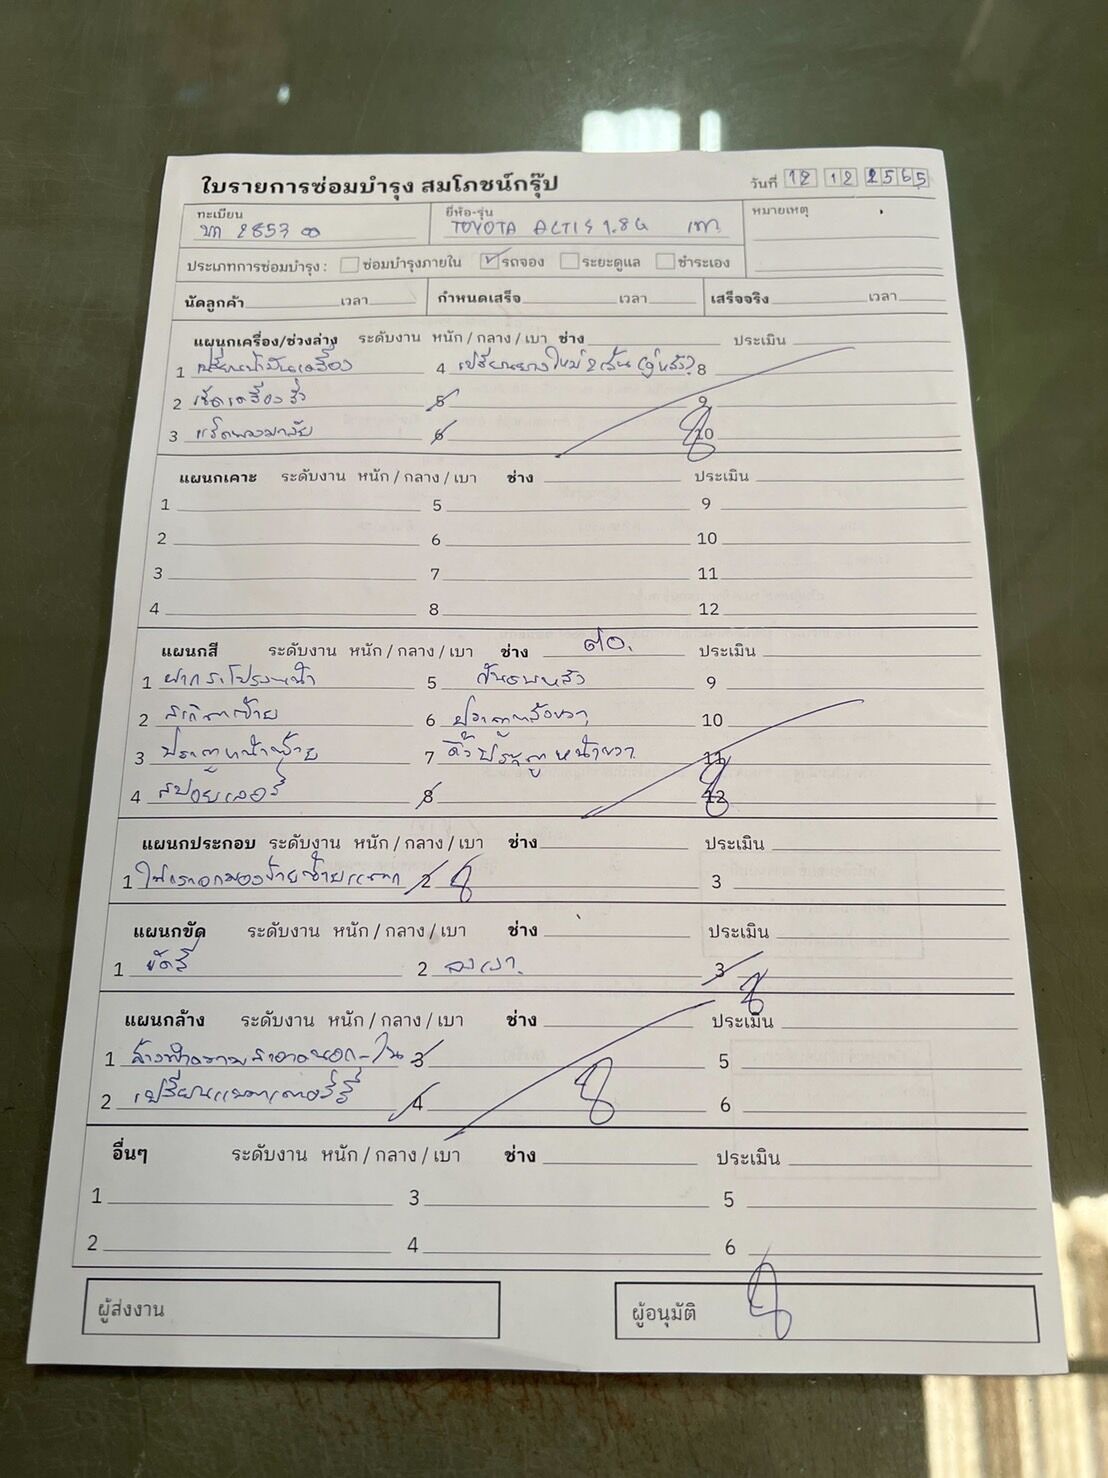 ใบรายการซ่อมบำรุง สมโภชน์กรุ๊ป
วันที่ 12 12 2565
ทะเบียน
ยี่ห้อ-รุ่น
หมายเหตุ
2853
TOYOTA ALTIS 1.8G เทา
ประเภทการซ่อมบำรุง : ซ่อมบำรุงภายใน รถจอง ระยะดูแล ชำระเอง
นัดลูกค้า เวลา กำหนดเสร็จ เวลา เสร็จจริง เวลา
แผนกเครื่อง/ช่วงล่าง ระดับงาน หนัก / กลาง / เบา ช่าง ประเมิน
1 เปลี่ยนน้ำมันเครื่อง 4 เปลี่ยนยางใหม่ 2 เส้น (คู่หลัง) 8
2 เช็คเครื่องรั่ว 5 9
3 แร็คพวงมาลัย 6 10
แผนกเคาะ ระดับงาน หนัก / กลาง / เบา ช่าง ประเมิน
1 5 9
2 6 10
3 7 11
4 8 12
แผนกสี ระดับงาน หนัก / กลาง / เบา ช่าง ประเมิน
1 ฝากระโปรงหน้า 5 กันชนหลัง 9
2 สเกิตซ้าย 6 ประตูหลังขวา 10
3 ประตูหน้าซ้าย 7 คิ้วประตูหน้าขวา 11
4 สปอยเลอร์ 8 12
แผนกประกอบ ระดับงาน หนัก / กลาง / เบา ช่าง ประเมิน
1 2 3
แผนกขัด ระดับงาน หนัก / กลาง / เบา ช่าง ประเมิน
1 ขัดสี 2 ลงเงา 3
แผนกล้าง ระดับงาน หนัก / กลาง / เบา ช่าง ประเมิน
1 ล้างทำความสะอาดนอก-ใน 3 5
2 เปลี่ยนแบตเตอร์รี่ 4 6
อื่นๆ ระดับงาน หนัก / กลาง / เบา ช่าง ประเมิน
1 3 5
2 4 6
ผู้ส่งงาน
ผู้อนุมัติ